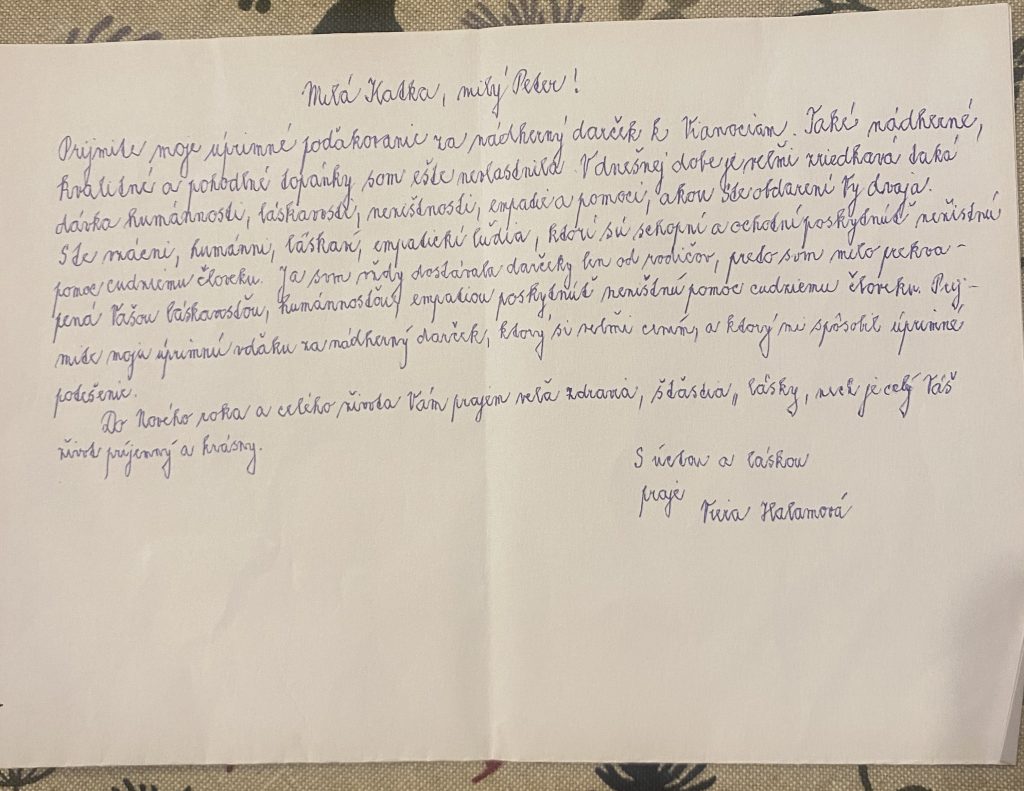 Milá Katka, milý Peter!
Prijmite moje úprimné poďakovanie za nádherný darček k Vianociam. Také nádherné,
kvalitné a pohodlné topánky som ešte nevlastnila. V dnešnej dobe je veľmi zriedkavá taká
dávka humánnosti, láskavosti, neništnosti, empatie a pomoci, akou ste obdarení Vy dvaja.
Ste vzácni, humánni, láskaví, empatickí ľudia, ktorí sú schopní a ochotní poskytnúť neništnú
pomoc cudziemu človeku. Ja som vždy dostávala darčeky len od rodičov, preto som milo prekva-
pená Vašou láskavosťou, humánnosťou, empatiou poskytnúť neništnú pomoc cudziemu človeku. Prij-
mite moju úprimnú vďaku za nádherný darček, ktorý si veľmi cením, a ktorý mi spôsobil úprimné
potešenie.
Do Nového roka a celého života Vám prajem veľa zdravia, šťastia,, lásky, nech je celý Váš
život príjemný a krásny.
S úctou a láskou
praje
Viera Halamová